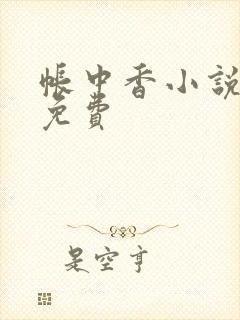 帳中香小說
免費
是空亭